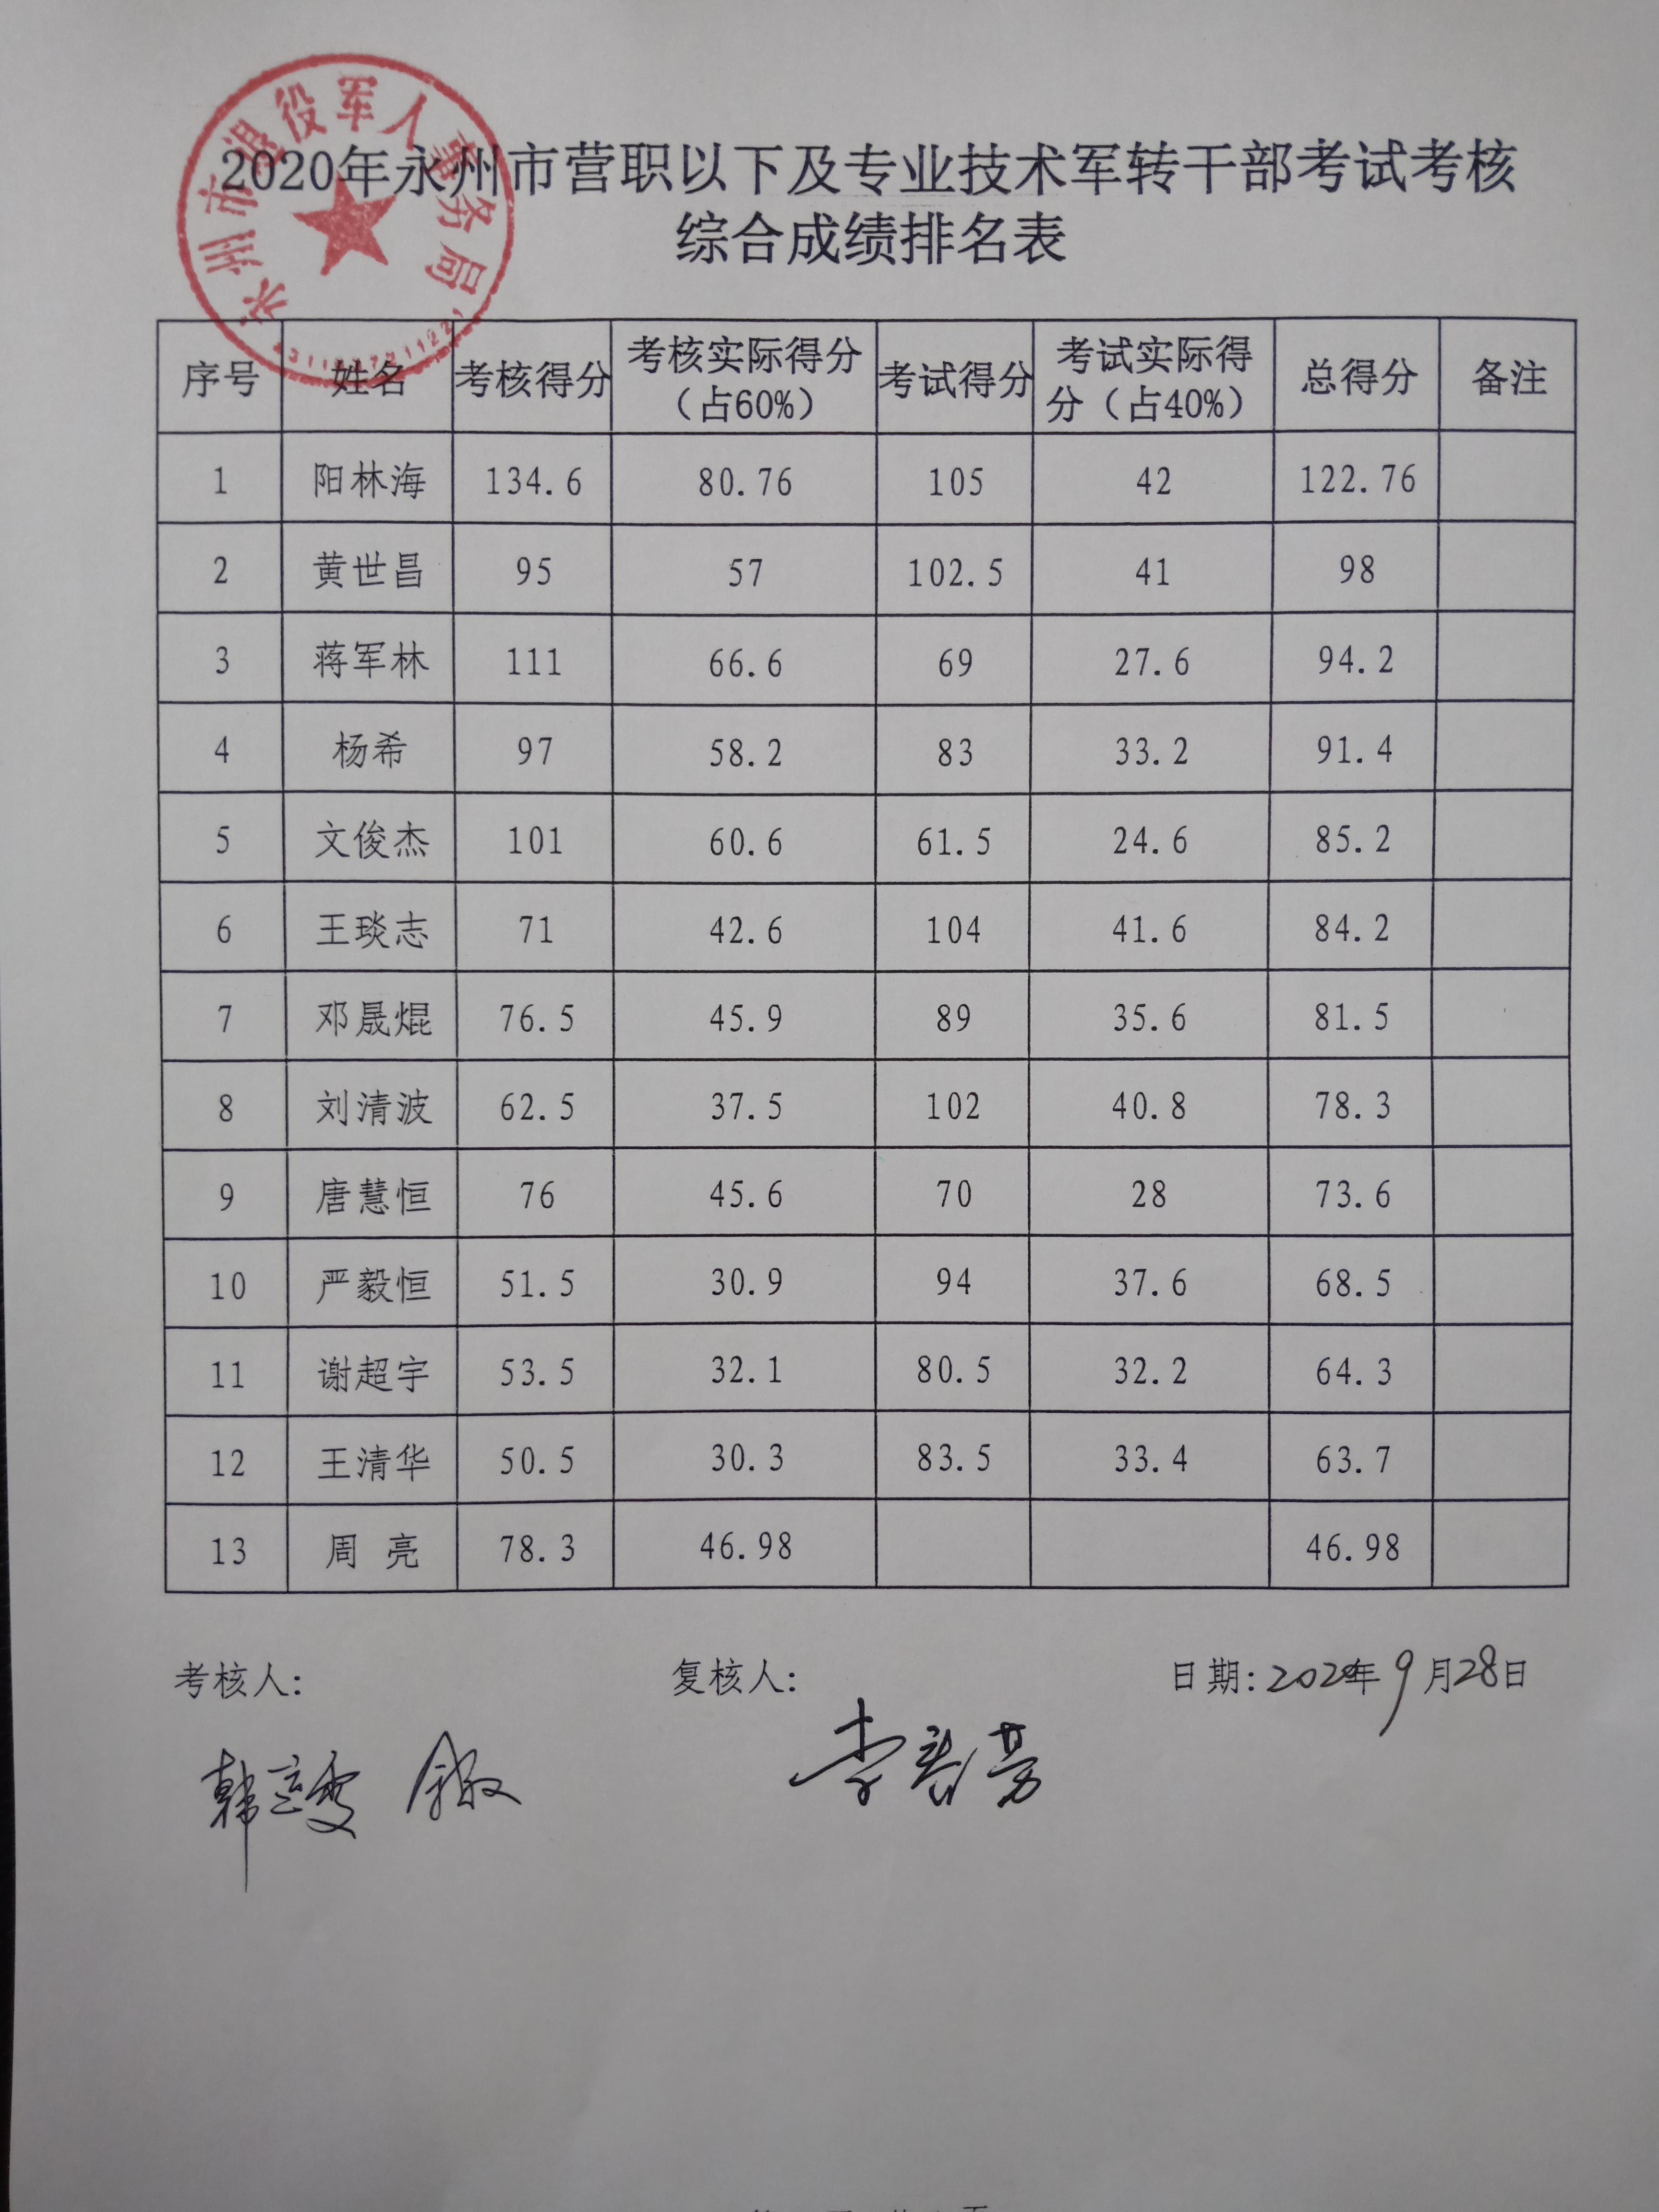 永州市退役军人事务局
2020年永州市营职以下及专业技术军转干部考试考核
综合成绩排名表
序号 姓名 考核得分 考核实际得分（占60%） 考试得分 考试实际得分（占40%） 总得分 备注
1 阳林海 134.6 80.76 105 42 122.76
2 黄世昌 95 57 102.5 41 98
3 蒋军林 111 66.6 69 27.6 94.2
4 杨希 97 58.2 83 33.2 91.4
5 文俊杰 101 60.6 61.5 24.6 85.2
6 王琰志 71 42.6 104 41.6 84.2
7 邓晟焜 76.5 45.9 89 35.6 81.5
8 刘清波 62.5 37.5 102 40.8 78.3
9 唐慧恒 76 45.6 70 28 73.6
10 严毅恒 51.5 30.9 94 37.6 68.5
11 谢超宇 53.5 32.1 80.5 32.2 64.3
12 王清华 50.5 30.3 83.5 33.4 63.7
13 周亮 78.3 46.98 46.98
考核人： 复核人： 日期：2020年9月28日
李春芳